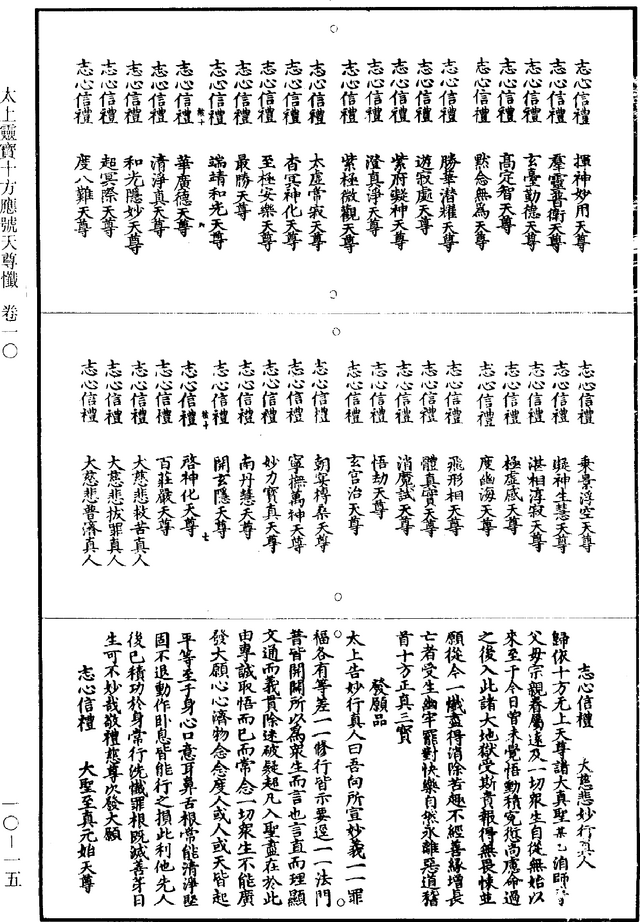 太上靈寶十方應號天尊懺 卷一〇
一〇—一五
志心信禮 揮神妙用天尊
志心信禮 羣靈普衛天尊
志心信禮 玄臺勳德天尊
志心信禮 高定智天尊
志心信禮 默念無為天尊
志心信禮 勝華潜耀天尊
志心信禮 遊寂處天尊
志心信禮 紫府凝神天尊
志心信禮 澄真淨天尊
志心信禮 紫極微觀天尊
志心信禮 太虛常寂天尊
志心信禮 杳冥神化天尊
志心信禮 至極安樂天尊
志心信禮 最勝天尊
志心信禮 端靖和光天尊
志心信禮 華廣德天尊
志心信禮 清淨真天尊
志心信禮 和光隱妙天尊
志心信禮 超冥際天尊
志心信禮 度八難天尊
志心信禮 乘景浮空天尊
志心信禮 凝神生慧天尊
志心信禮 湛相淳寂天尊
志心信禮 極虛感天尊
志心信禮 度幽海天尊
志心信禮 飛形相天尊
志心信禮 體真實天尊
志心信禮 消魔試天尊
志心信禮 悟劫天尊
志心信禮 玄宮治天尊
志心信禮 朝宴榑桑天尊
志心信禮 寧撫萬神天尊
志心信禮 妙力寶真天尊
志心信禮 南丹慧天尊
志心信禮 開玄隱天尊
志心信禮 啓神化天尊
志心信禮 百莊嚴天尊
志心信禮 大慈悲救苦真人
志心信禮 大慈悲拔罪真人
志心信禮 大慈悲普濟真人
志心信禮 大慈悲妙行真人
歸依十方无上天尊諸大真聖某
父母宗親眷屬遠及一切衆生自從無始以
來至于今日曾未覺悟動積寃愆高慮命過
之後入此諸大地獄受斯責報得無畏悚並
願從今一懺盡得消除苦趣不經善緣增長
亡者受生幽牢罷對快樂自然永離惡道稽
首十方正真三寶
發願品
太上告妙行真人曰吾向所宣妙義一一罪
福各有等差一一修行皆示要逕一一法門
普皆開闡所以為衆生而言也言直而理顯
文通而義貫除迷破疑超凡入聖盡在於此
由專誠取悟而已而常念一切衆生不能廣
發大願心心濟物念念度人或人或天皆起
平等至于身心口意耳鼻舌根常能清淨堅
固不退動作卧息皆能行之損此利他先人
後己積功於身常行洗懺罪根既滅善芽日
生可不妙哉敬禮慈尊次發大願
志心信禮 大聖至真元始天尊